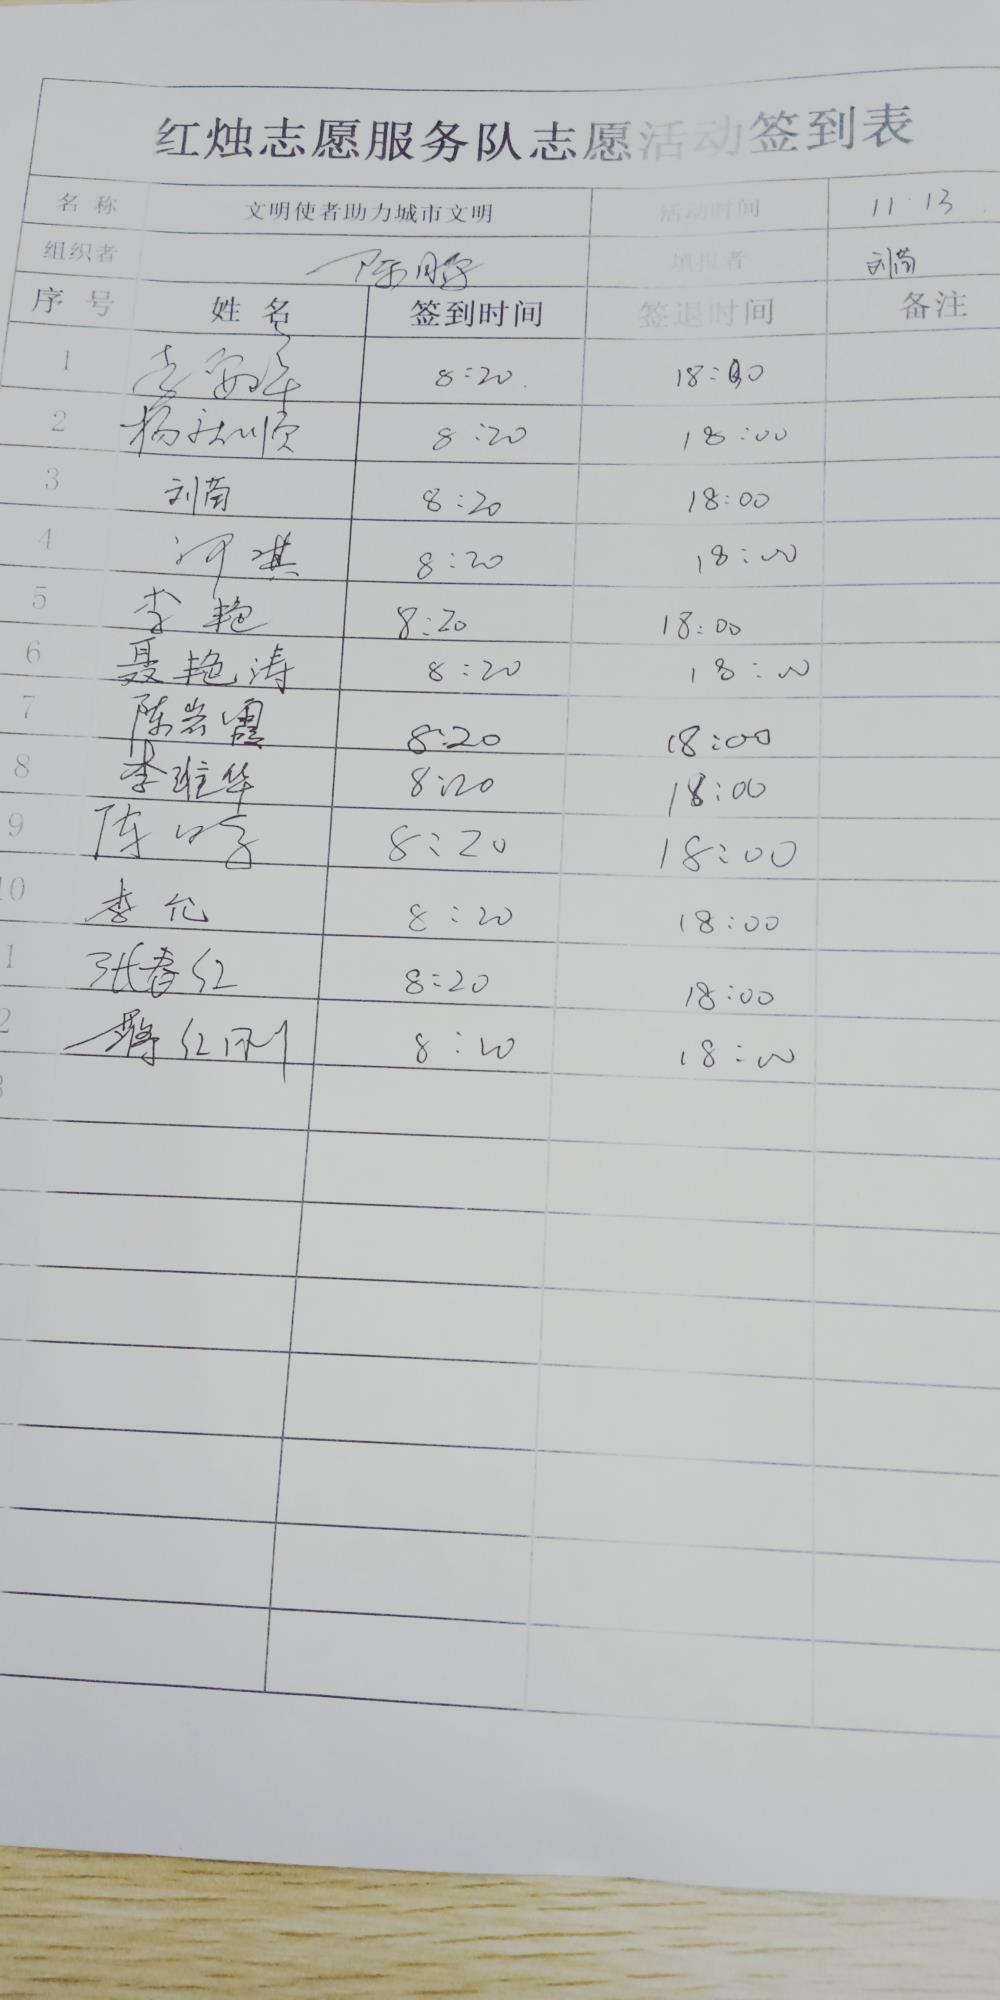 红烛志愿服务队志愿活动签到表
名称 文明使者助力城市文明 活动时间 11·13
组织者 填报者 刘茵
序号 姓名 签到时间 签退时间 备注
1 8:20 18:00
2 杨 顺 8:20 18:00
3 刘茵 8:20 18:00
4 河琪 8:20 18:00
5 李艳 8:20 18:00
6 聂艳涛 8:20 18:00
7 陈岩霞 8:20 18:00
8 李维华 8:20 18:00
9 陈 8:20 18:00
10 李伦 8:20 18:00
1 张春红 8:20 18:00
2 红刚 8:20 18:00
3